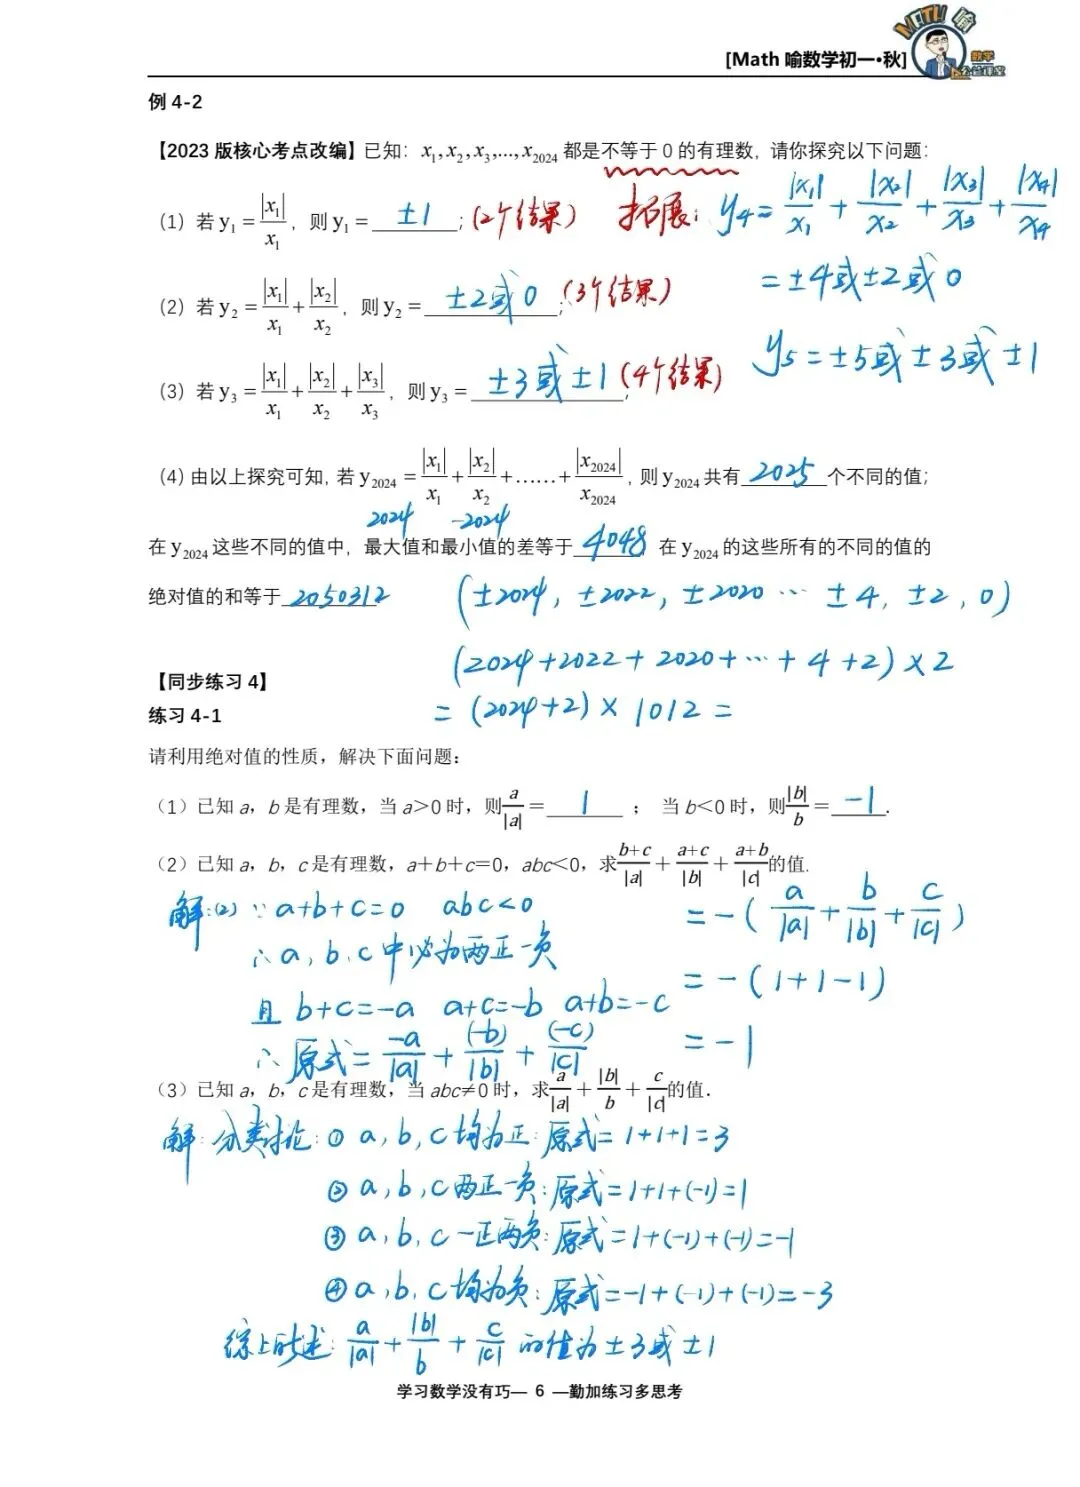 [Math 喻数学初一•秋]
MATH 喻
数学
公益课堂
例 4-2
【2023 版核心考点改编】已知：x₁,x₂,x₃,...,x₂₀₂₄ 都是不等于 0 的有理数，请你探究以下问题：
（1）若 y₁ = |x₁|/x₁，则 y₁ = ±1；(2个结果)
拓展：y₄ = |x₁|/x₁ + |x₂|/x₂ + |x₃|/x₃ + |x₄|/x₄
= ±4或±2或0
（2）若 y₂ = |x₁|/x₁ + |x₂|/x₂，则 y₂ = ±2或0；(3个结果)
y₅ = ±5或±3或±1
（3）若 y₃ = |x₁|/x₁ + |x₂|/x₂ + |x₃|/x₃，则 y₃ = ±3或±1；(4个结果)
（4）由以上探究可知，若 y₂₀₂₄ = |x₁|/x₁ + |x₂|/x₂ + …… + |x₂₀₂₄|/x₂₀₂₄，则 y₂₀₂₄ 共有 2025 个不同的值；
2024 -2024
在 y₂₀₂₄ 这些不同的值中，最大值和最小值的差等于 4048 在 y₂₀₂₄ 的这些所有的不同的值的
绝对值的和等于 2050312
(±2024, ±2022, ±2020 … ±4, ±2, 0)
(2024+2022+2020+…+4+2)×2
= (2024+2)×1012 =
【同步练习 4】
练习 4-1
请利用绝对值的性质，解决下面问题：
（1）已知 a，b 是有理数，当 a＞0 时，则 a/|a| = 1 ； 当 b＜0 时，则 |b|/b = -1 .
（2）已知 a，b，c 是有理数，a＋b＋c＝0，abc＜0，求 b+c/|a| + a+c/|b| + a+b/|c| 的值.
解:(2) ∵ a+b+c=0 abc<0
∴ a, b, c 中必为两正一负
且 b+c=-a a+c=-b a+b=-c
∴ 原式= -a/|a| + (-b)/|b| + (-c)/|c|
= -( a/|a| + b/|b| + c/|c| )
= -(1+1-1)
= -1
（3）已知 a，b，c 是有理数，当 abc≠0 时，求 a/|a| + |b|/b + c/|c| 的值．
解：分类讨论：① a, b, c 均为正：原式=1+1+1=3
② a, b, c 两正一负：原式=1+1+(-1)=1
③ a, b, c 一正两负：原式=1+(-1)+(-1)=-1
④ a, b, c 均为负：原式=-1+(-1)+(-1)=-3
综上所述：a/|a| + |b|/b + c/|c| 的值为±3或±1
学习数学没有巧— 6 —勤加练习多思考